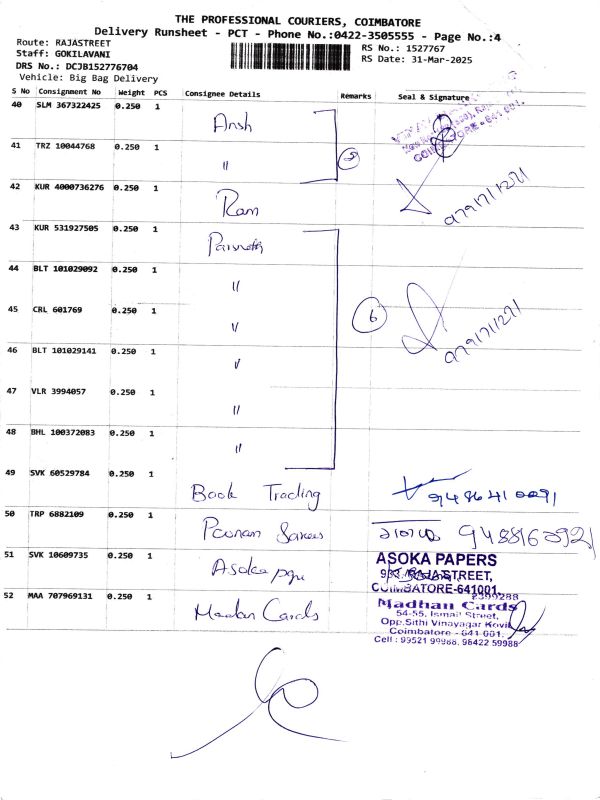 THE PROFESSIONAL COURIERS, COIMBATORE
Delivery Runsheet - PCT - Phone No.:0422-3505555 - Page No.:4
Route: RAJASTREET
Staff: GOKILAVANI
DRS No.: DCJB152776704
Vehicle: Big Bag Delivery
RS No.: 1527767
RS Date: 31-Mar-2025
S No Consignment No Weight PCS Consignee Details Remarks Seal & Signature
40 SLM 367322425 0.250 1 Ansh
COIMBATORE - 641 001.
41 TRZ 10044768 0.250 1 "
42 KUR 4000736276 0.250 1 Ram
43 KUR 531927505 0.250 1
44 BLT 101029092 0.250 1 "
45 CRL 601769 0.250 1 "
6
46 BLT 101029141 0.250 1 "
47 VLR 3994057 0.250 1 "
48 BHL 100372083 0.250 1 "
49 SVK 60529784 0.250 1 Book Trading
50 TRP 6882109 0.250 1 Poonam
51 SVK 10609735 0.250 1 Asoka
ASOKA PAPERS
RAJA STREET,
COIMBATORE-641001.
2399288
52 MAA 707969131 0.250 1 Madan Cards
Madhan Cards
54-55, Ismail Street,
Opp.Sithi Vinayagar Kovil
Coimbatore - 641 001.
Cell : 99521 99988, 98422 59988